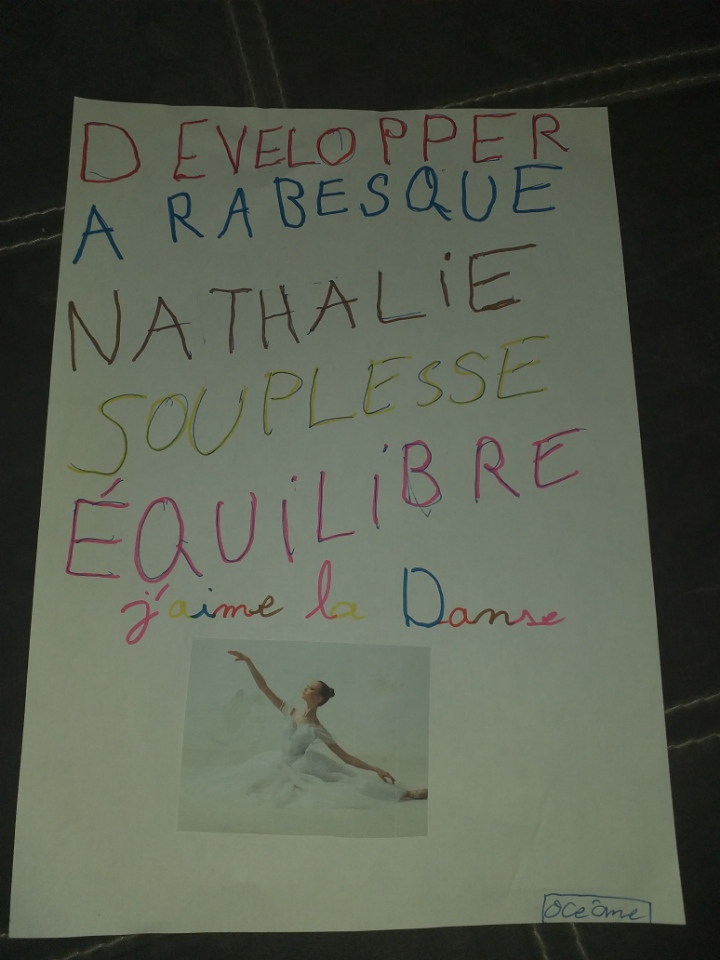 DEVELOPPER
ARABESQUE
NATHALiE
SOUPLESSE
ÉQUiLiBRE
j'aime la Danse
Océane